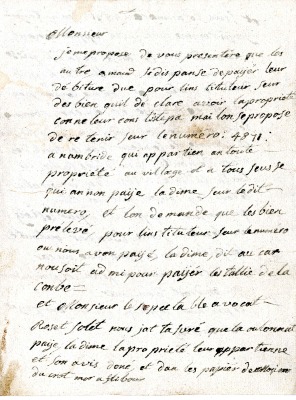 Monsieur
je me propose de vous presentére que les
autre amaud se dis panse de payér leur
de biture due pour lins tituteur sur
des bien quil de clare avoir la propriété
con ne leur cons lislipa mai lon se propose
de re tenir sur le numero : 4871 :
a nambride qui appartien en toute
propriété au village et a tous seusse
qui an non paÿé la dime sur le dit
numero, et lon demande que les bien
pre levé pour lins tituteur sur le numero
ou nous avon payé la dime, dit au cas
nous soit ad mi pour paÿer les tallié de la
Conbe
et Monsieur le avocat
Roset Solet nous la
paÿe la dime la proprieté leur appartienne
et son avis doné et dan les papier de
du